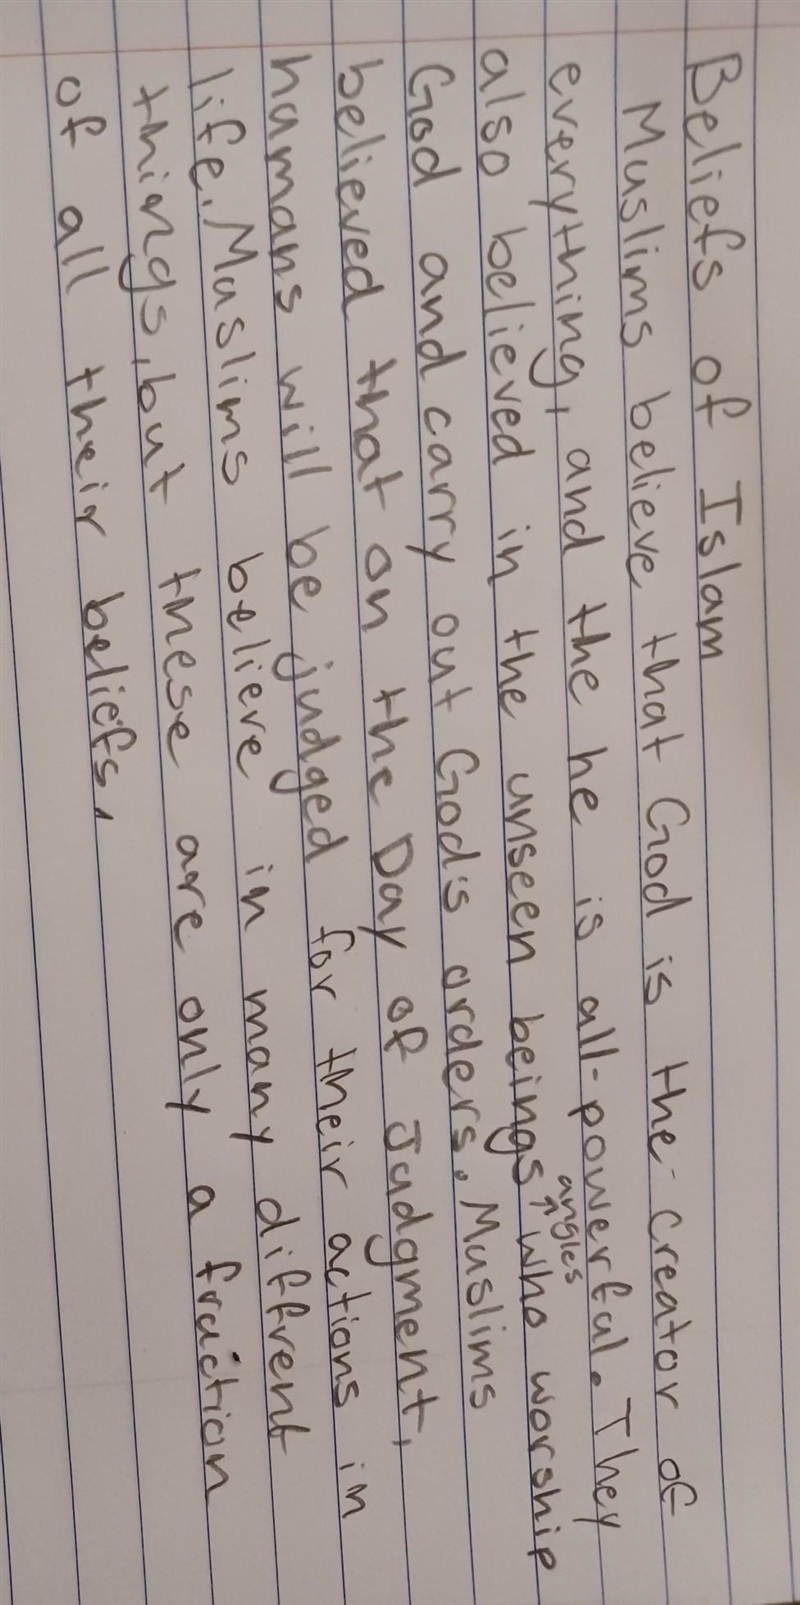 Beliefs of Islam
Muslims believe that God is the creator of
everything, and the he is all-powerful. They
also believed in the unseen beings angles who worship
God and carry out God's orders. Muslims
believed that on the Day of Judgment,
humans will be judged for their actions in
life. Muslims believe in many diffrent
things, but these are only a fraction
of all their beliefs.